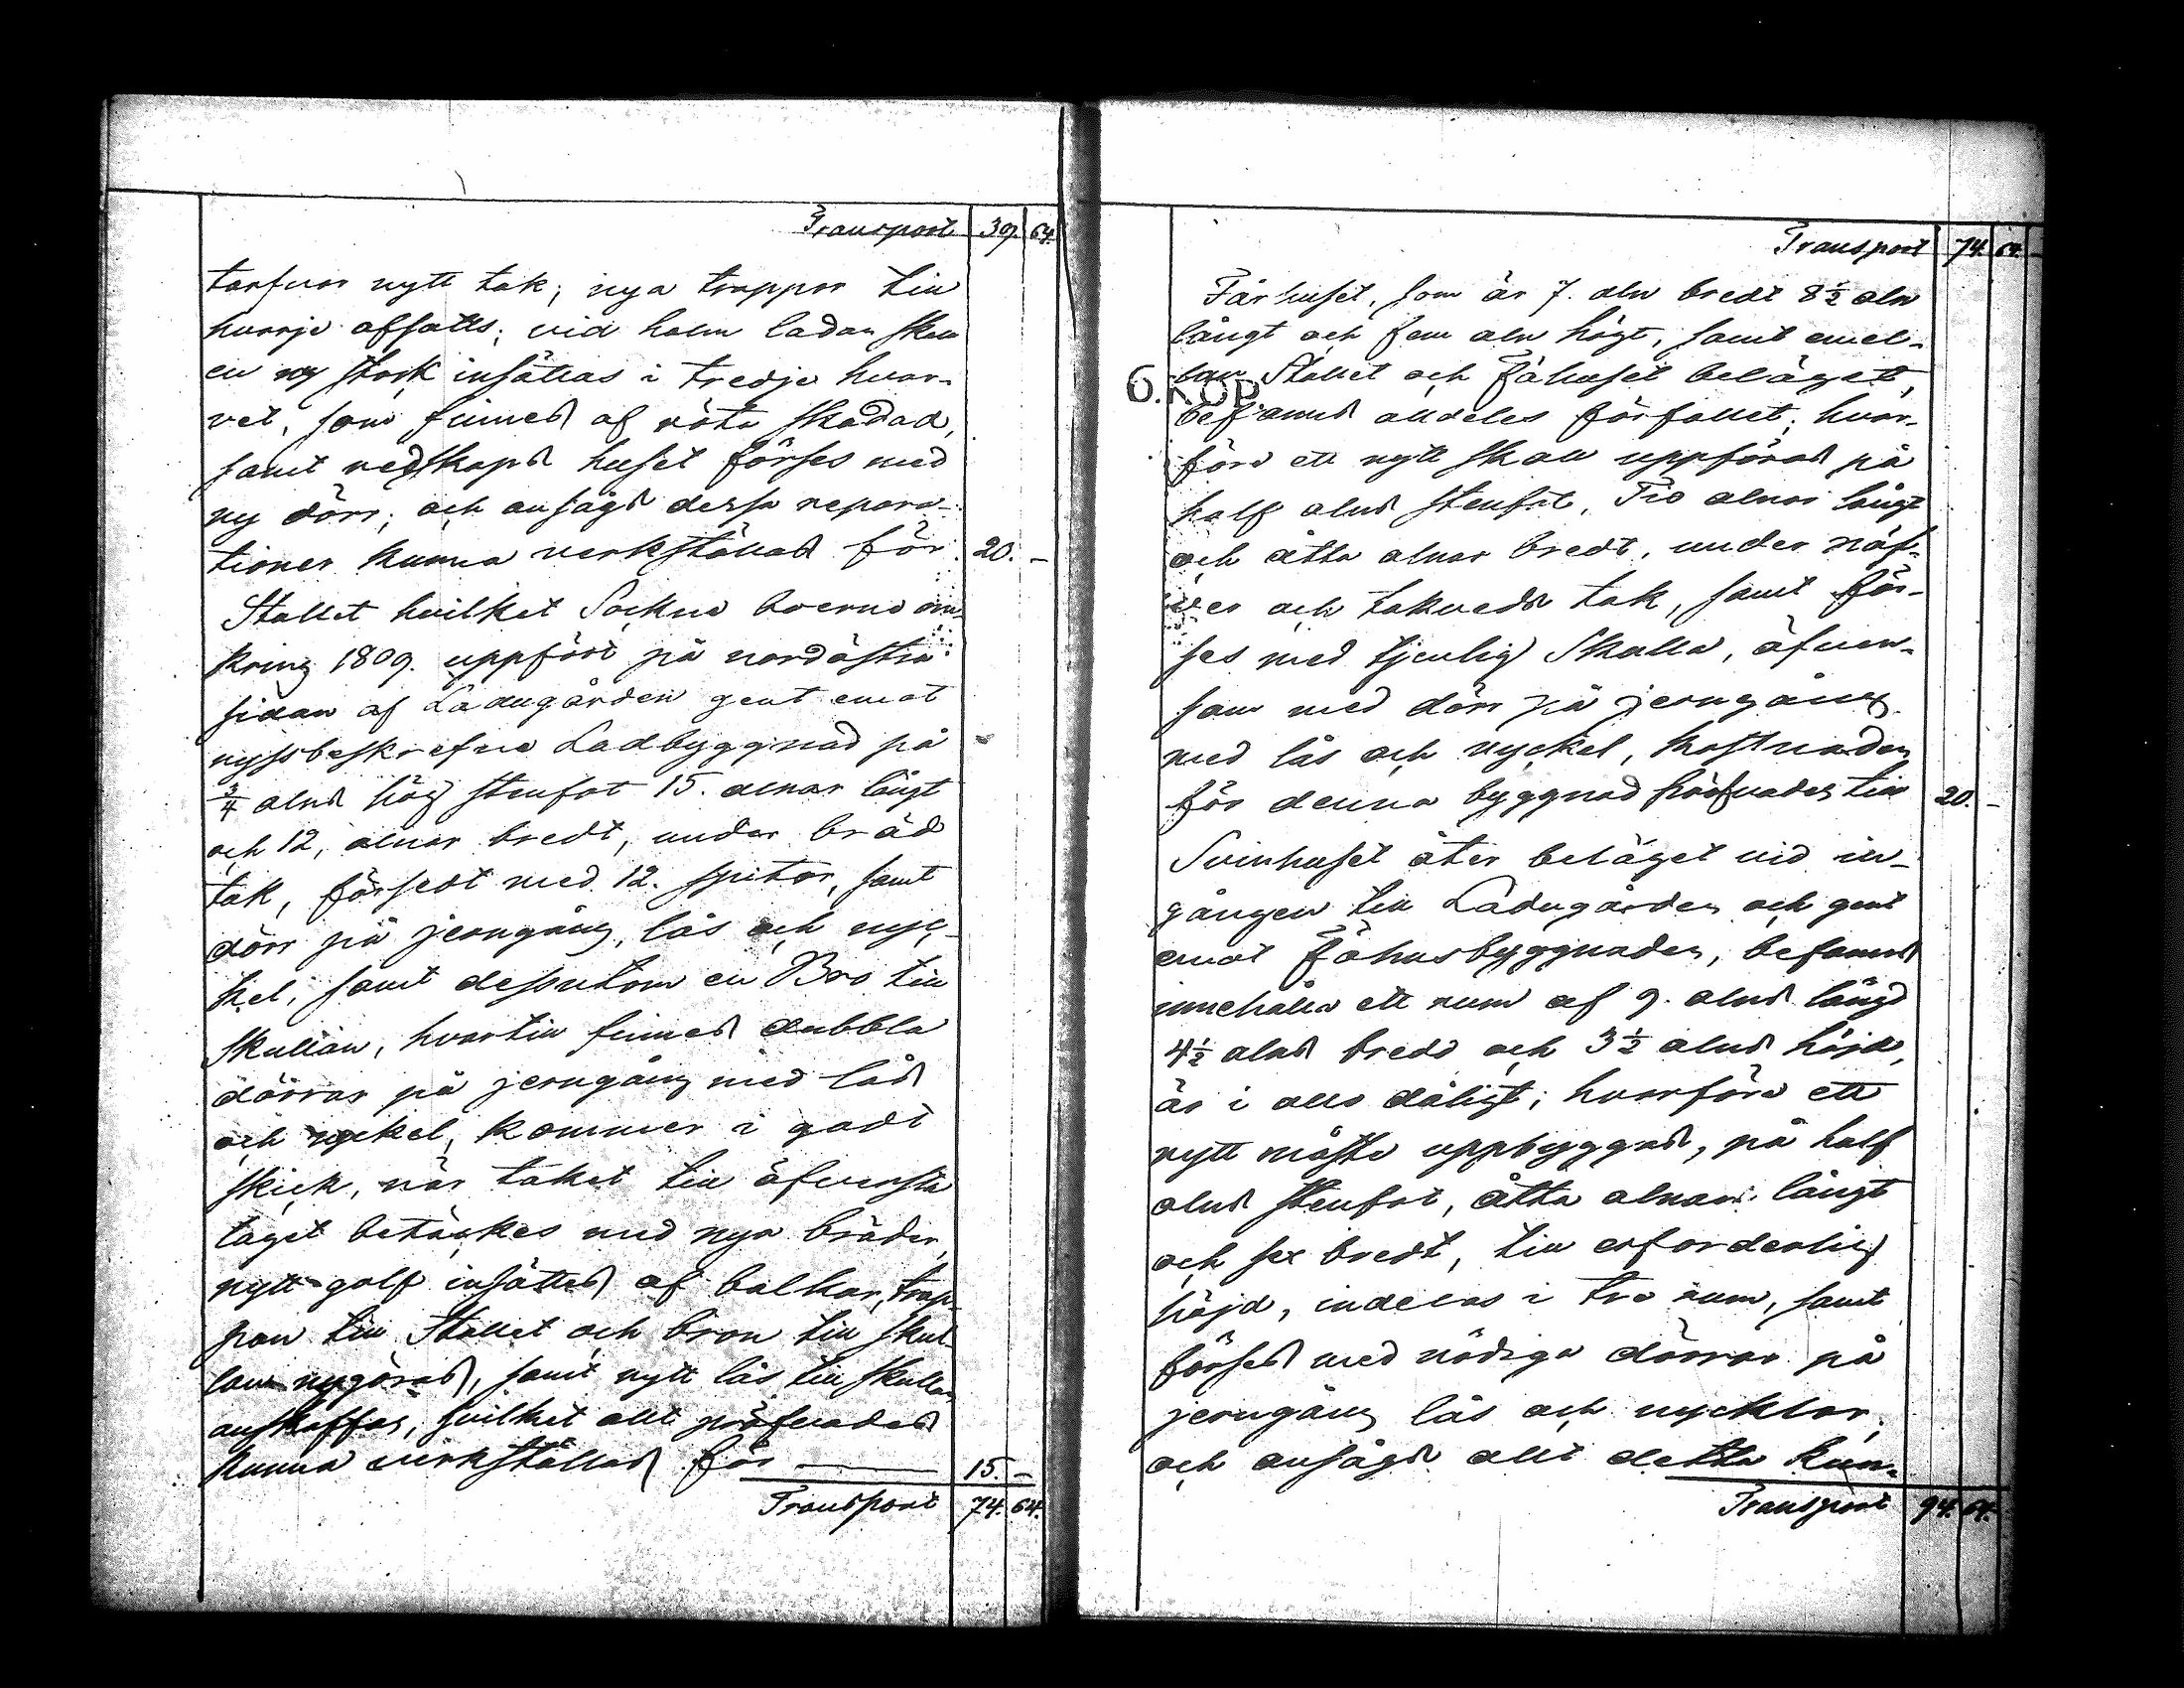 Transport 39. 64.
tarfvar nytt tak; nya trappor till
hvarje afsatts; vid halm ladan skall
en ny stock insättas i tredje hvar-
vet, som finnes af röta skadad,
samt redskaps huset förses med
ny dörr; och ansågs dessa repara-
tioner kunna verkställas för 20. -
Stallet hvilket Sockne boerne om-
kring 1809. uppfört på nordöstra
sidan af Ladugården gent emot
nyssbeskrefne Ladbyggnad på
3/4 alns hög stenfot 15. alnar långt
och 12, alnar bredt, under bräd
tak, försedt med 12. spiltor, samt
dörr på jerngång, lås och nyc-
kel, samt dessutom en Bro till
Skullan, hvartill finnes dubbla
dörrar på jerngång med lås
och nyckel, kommer i godt
skick, när taket till öfversta
taget betäckes med nya bräder,
nytt golf insättes af balkar, trap-
pan till Stallet och bron till skul-
lan nygöres, samt nytt lås till skullan
anskaffas, hvilket allt pröfvades
kunna verkställas för 15. -
Transport 74. 64.
Transport 74. 64. -
Fårhuset, som är 7. aln bredt 8 1/2 aln
långt och fem aln högt, samt emel-
lan Stallet och Fähuset beläget,
6.KOP
befanns alldeles förfallet; hvar-
före ett nytt skall uppföras på
half alns stenfot, Tio alnar långt
och åtta alnar bredt, under näf-
ver och takveds tak, samt för-
ses med tjenlig Skulla, äfven-
som med dörr på jerngång
med lås och nyckel, kostnaden
för denna byggnad pröfvades till 20. -
Svinhuset åter beläget vid in-
gången till Ladugården och gent
emot Fähusbyggnaden, befanns
innehålla ett rum af 9. alns längd
4 1/2 alns bredd och 3 1/2 alns höjd,
är i allo dåligt; hvarföre ett
nytt måste uppbyggas, på half
alns stenfot, åtta alnar långt
och sex bredt, till erforderlig
höjd, indelas i tre rum, samt
förses med nödiga dörrar på
jerngång lås och nycklar,
och ansågs allt detta kun-
Transport 94. 64.